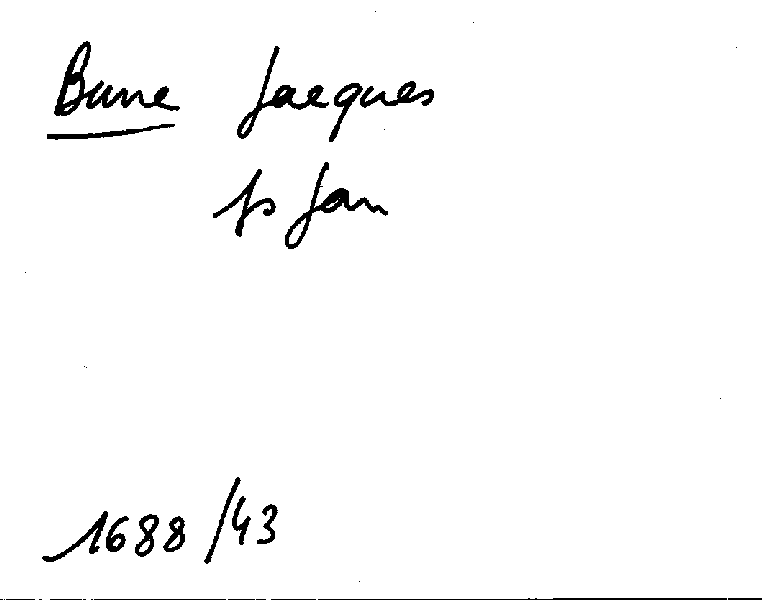 Bune Jacques
fs Jan
1688/43